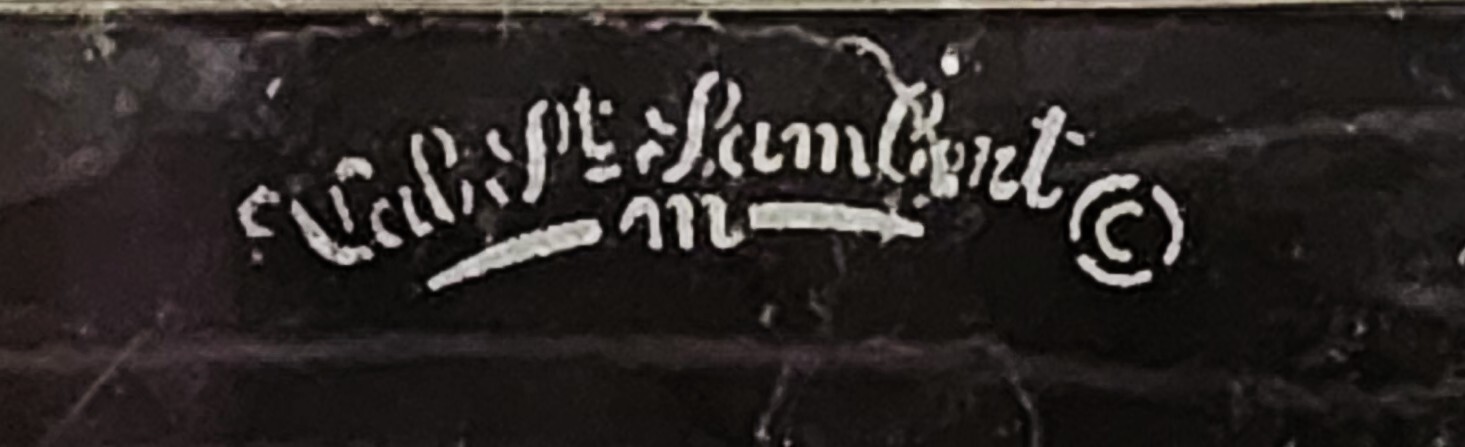 Val. St. Lambert ©
m